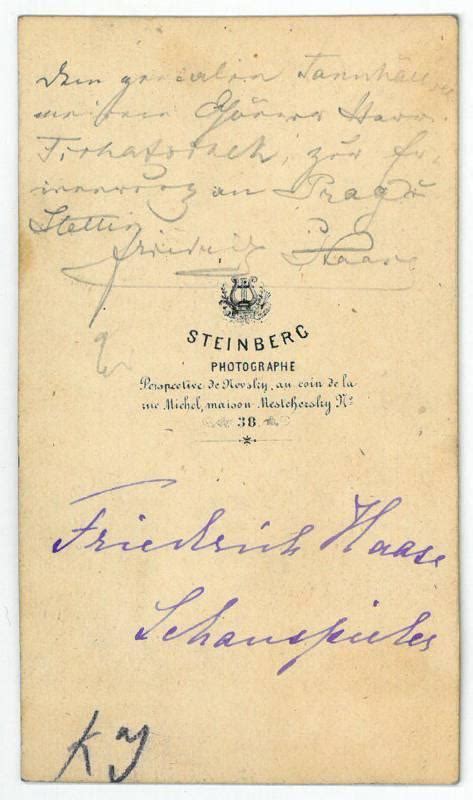 Dem genialen Tannhäuser
meinem Gönner Herr
Tichatscheck, zur Er-
innerung an Prag u
Stettin
Friedrich Haase
STEINBERG
PHOTOGRAPHE
Perspective de Nevsky, au coin de la
rue Michel, maison Mestchersky Nº
38.
Friedrich Haase
Schauspieler